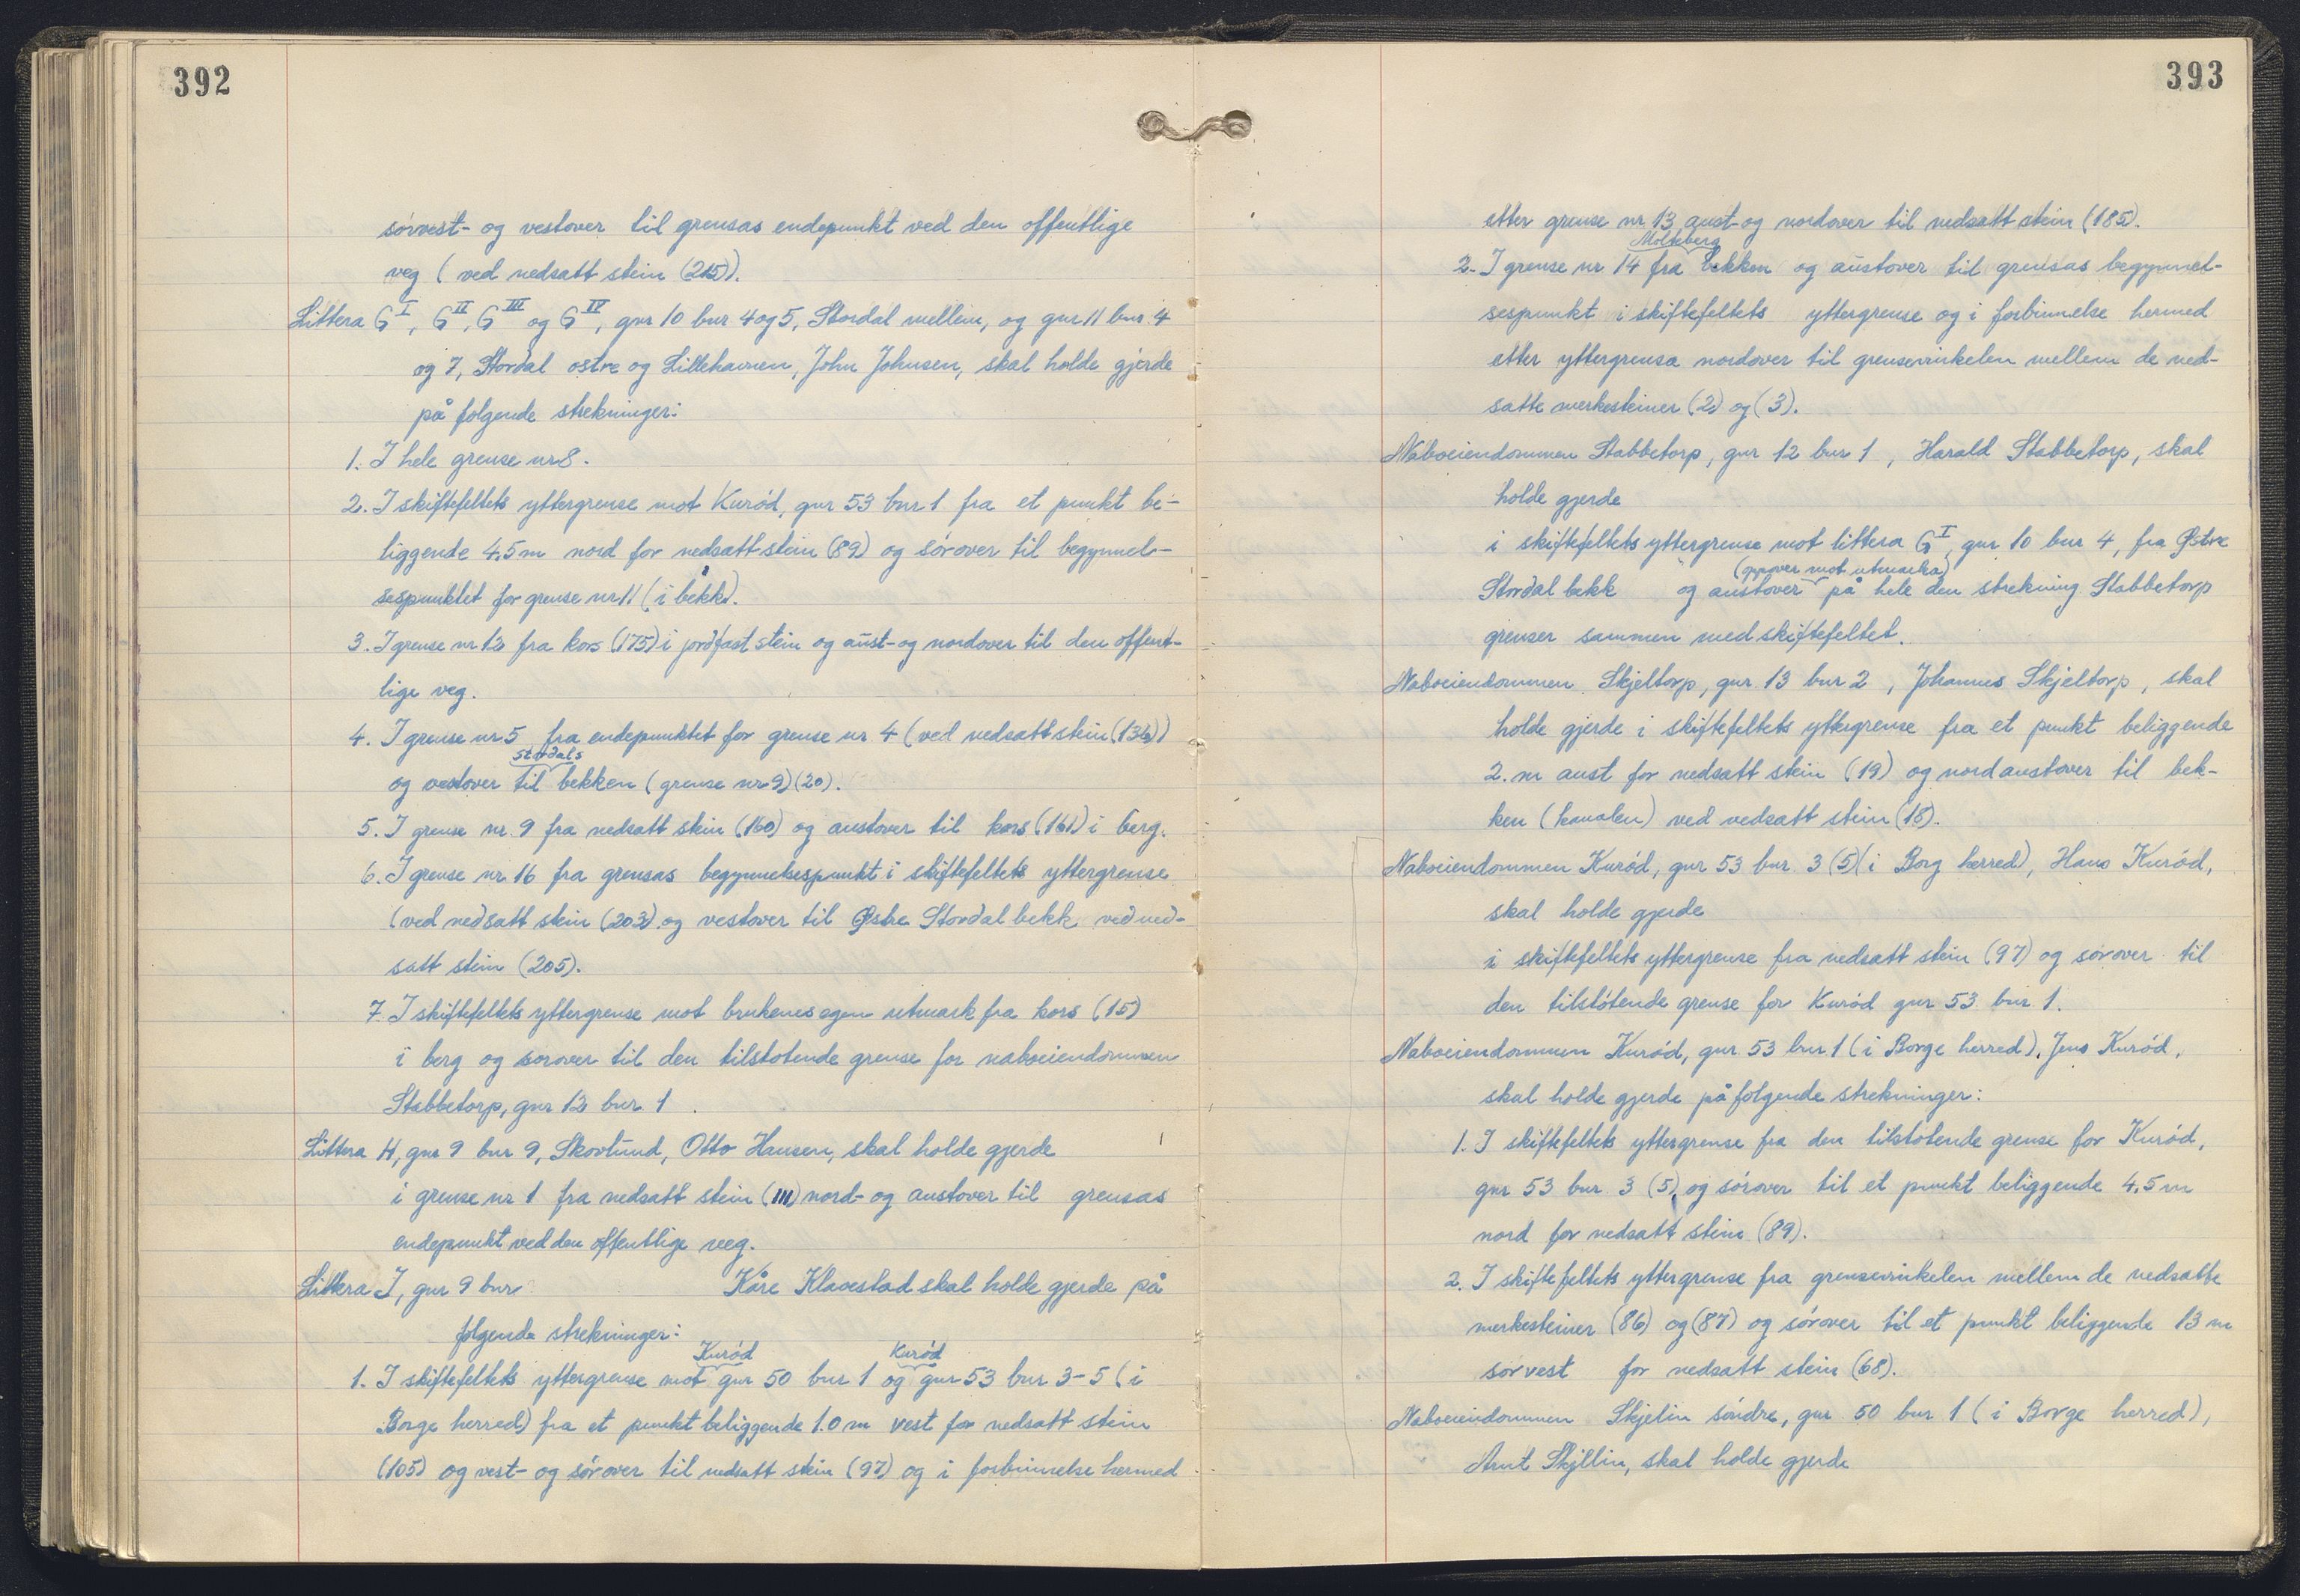 392
sørvest- og vestover til grensas endepunkt ved den offentlige
veg (ved nedsatt stein (215)).
Littera G I, G II, G III og G IV, gnr 10 bnr 4 og 5, Stordal mellem, og gnr 11 bnr. 4
og 7, Stordal østre og Lillehavnen, John Johnsen, skal holde gjerde
på følgende strekninger:
1. I hele grense nr 8.
2. I skiftefeltets yttergrense mot Kurød, gnr 53 bnr 1 fra et punkt be-
liggende 4,5 m nord for nedsatt stein (89) og sørover til begynnel-
sespunktet for grense nr 11 (i bekk).
3. I grense nr 12 fra kors (175) i jordfast stein og aust- og nordover til den offent-
lige veg.
4. I grense nr 5 fra endepunktet for grense nr 4 (ved nedsatt stein (136))
Stordals
og vestover til bekken (grense nr 9) (20).
5. I grense nr. 9 fra nedsatt stein (160) og austover til kors (161) i berg.
6. I grense nr. 16 fra grensas begynnelsespunkt i skiftefeltets yttergrense
(ved nedsatt stein (203) og vestover til Østre Stordal bekk ved ned-
satt stein (205).
7. I skiftefeltets yttergrense mot brukenes egen utmark fra kors (15)
i berg og sørover til den tilstøtende grense for naboeiendommen
Stabbetorp, gnr 12 bnr 1.
Littera H, gnr 9 bnr 9, Skovlund, Otto Hansen, skal holde gjerde
i grense nr 1 fra nedsatt stein (111) nord- og austover til grensas
endepunkt ved den offentlige veg.
Littera I, gnr 9 bnr Kåre Klavestad skal holde gjerde på
følgende strekninger:
Kurød Kurød
1. I skiftefeltets yttergrense mot gnr 50 bnr 1 og gnr 53 bnr 3-5 (i
Borge herred) fra et punkt beliggende 1.0 m vest for nedsatt stein
(105) og vest- og sørover til nedsatt stein (97) og i forbinnelse hermed
393
etter grense nr. 13 aust- og nordover til nedsatt stein (185).
Molteberg
2. I grense nr 14 fra bekken og austover til grensas begynnel-
sespunkt i skiftefeltets yttergrense og i forbinnelse hermed
etter yttergrensa nordover til grensevinkelen mellem de ned-
satte merkesteiner (2) og (3).
Naboeiendommen Stabbetorp, gnr 12 bnr 1, Harald Stabbetorp, skal
holde gjerde
i skiftefeltets yttergrense mot littera G I, gnr 10 bnr 4, fra Østre
(oppover mot utmarka)
Stordal bekk og austover på hele den strekning Stabbetorp
grenser sammen med skiftefeltet.
Naboeiendommen Skjeltorp, gnr. 13 bnr 2, Johannes Skjeltorp, skal
holde gjerde i skiftefeltets yttergrense fra et punkt beliggende
2. m aust for nedsatt stein (19) og nordaustover til bek-
ken (kanalen) ved nedsatt stein (18).
Naboeiendommen Kurød, gnr 53 bnr. 3 (5) (i Borg herred), Hans Kurød,
skal holde gjerde
i skiftefeltets yttergrense fra nedsatt stein (97) og sørover til
den tilstøtende grense for Kurød gnr 53 bnr 1.
Naboeiendommen Kurød, gnr 53 bnr 1 (i Borge herred), Jens Kurød,
skal holde gjerde på følgende strekninger:
1. I skiftefeltets yttergrense fra den tilstøtende grense for Kurød,
gnr 53 bnr 3 (5), og sørover til et punkt beliggende 4.5 m
nord for nedsatt stein (89).
2. I skiftefeltets yttergrense fra grensevinkelen mellem de nedsatte
merkesteiner (86) og (87) og sørover til et punkt beliggende 13 m
sørvest for nedsatt stein (68).
Naboeiendommen Skjelin søndre, gnr 50 bnr 1 (i Borge herred),
Arnt Skjllin, skal holde gjerde